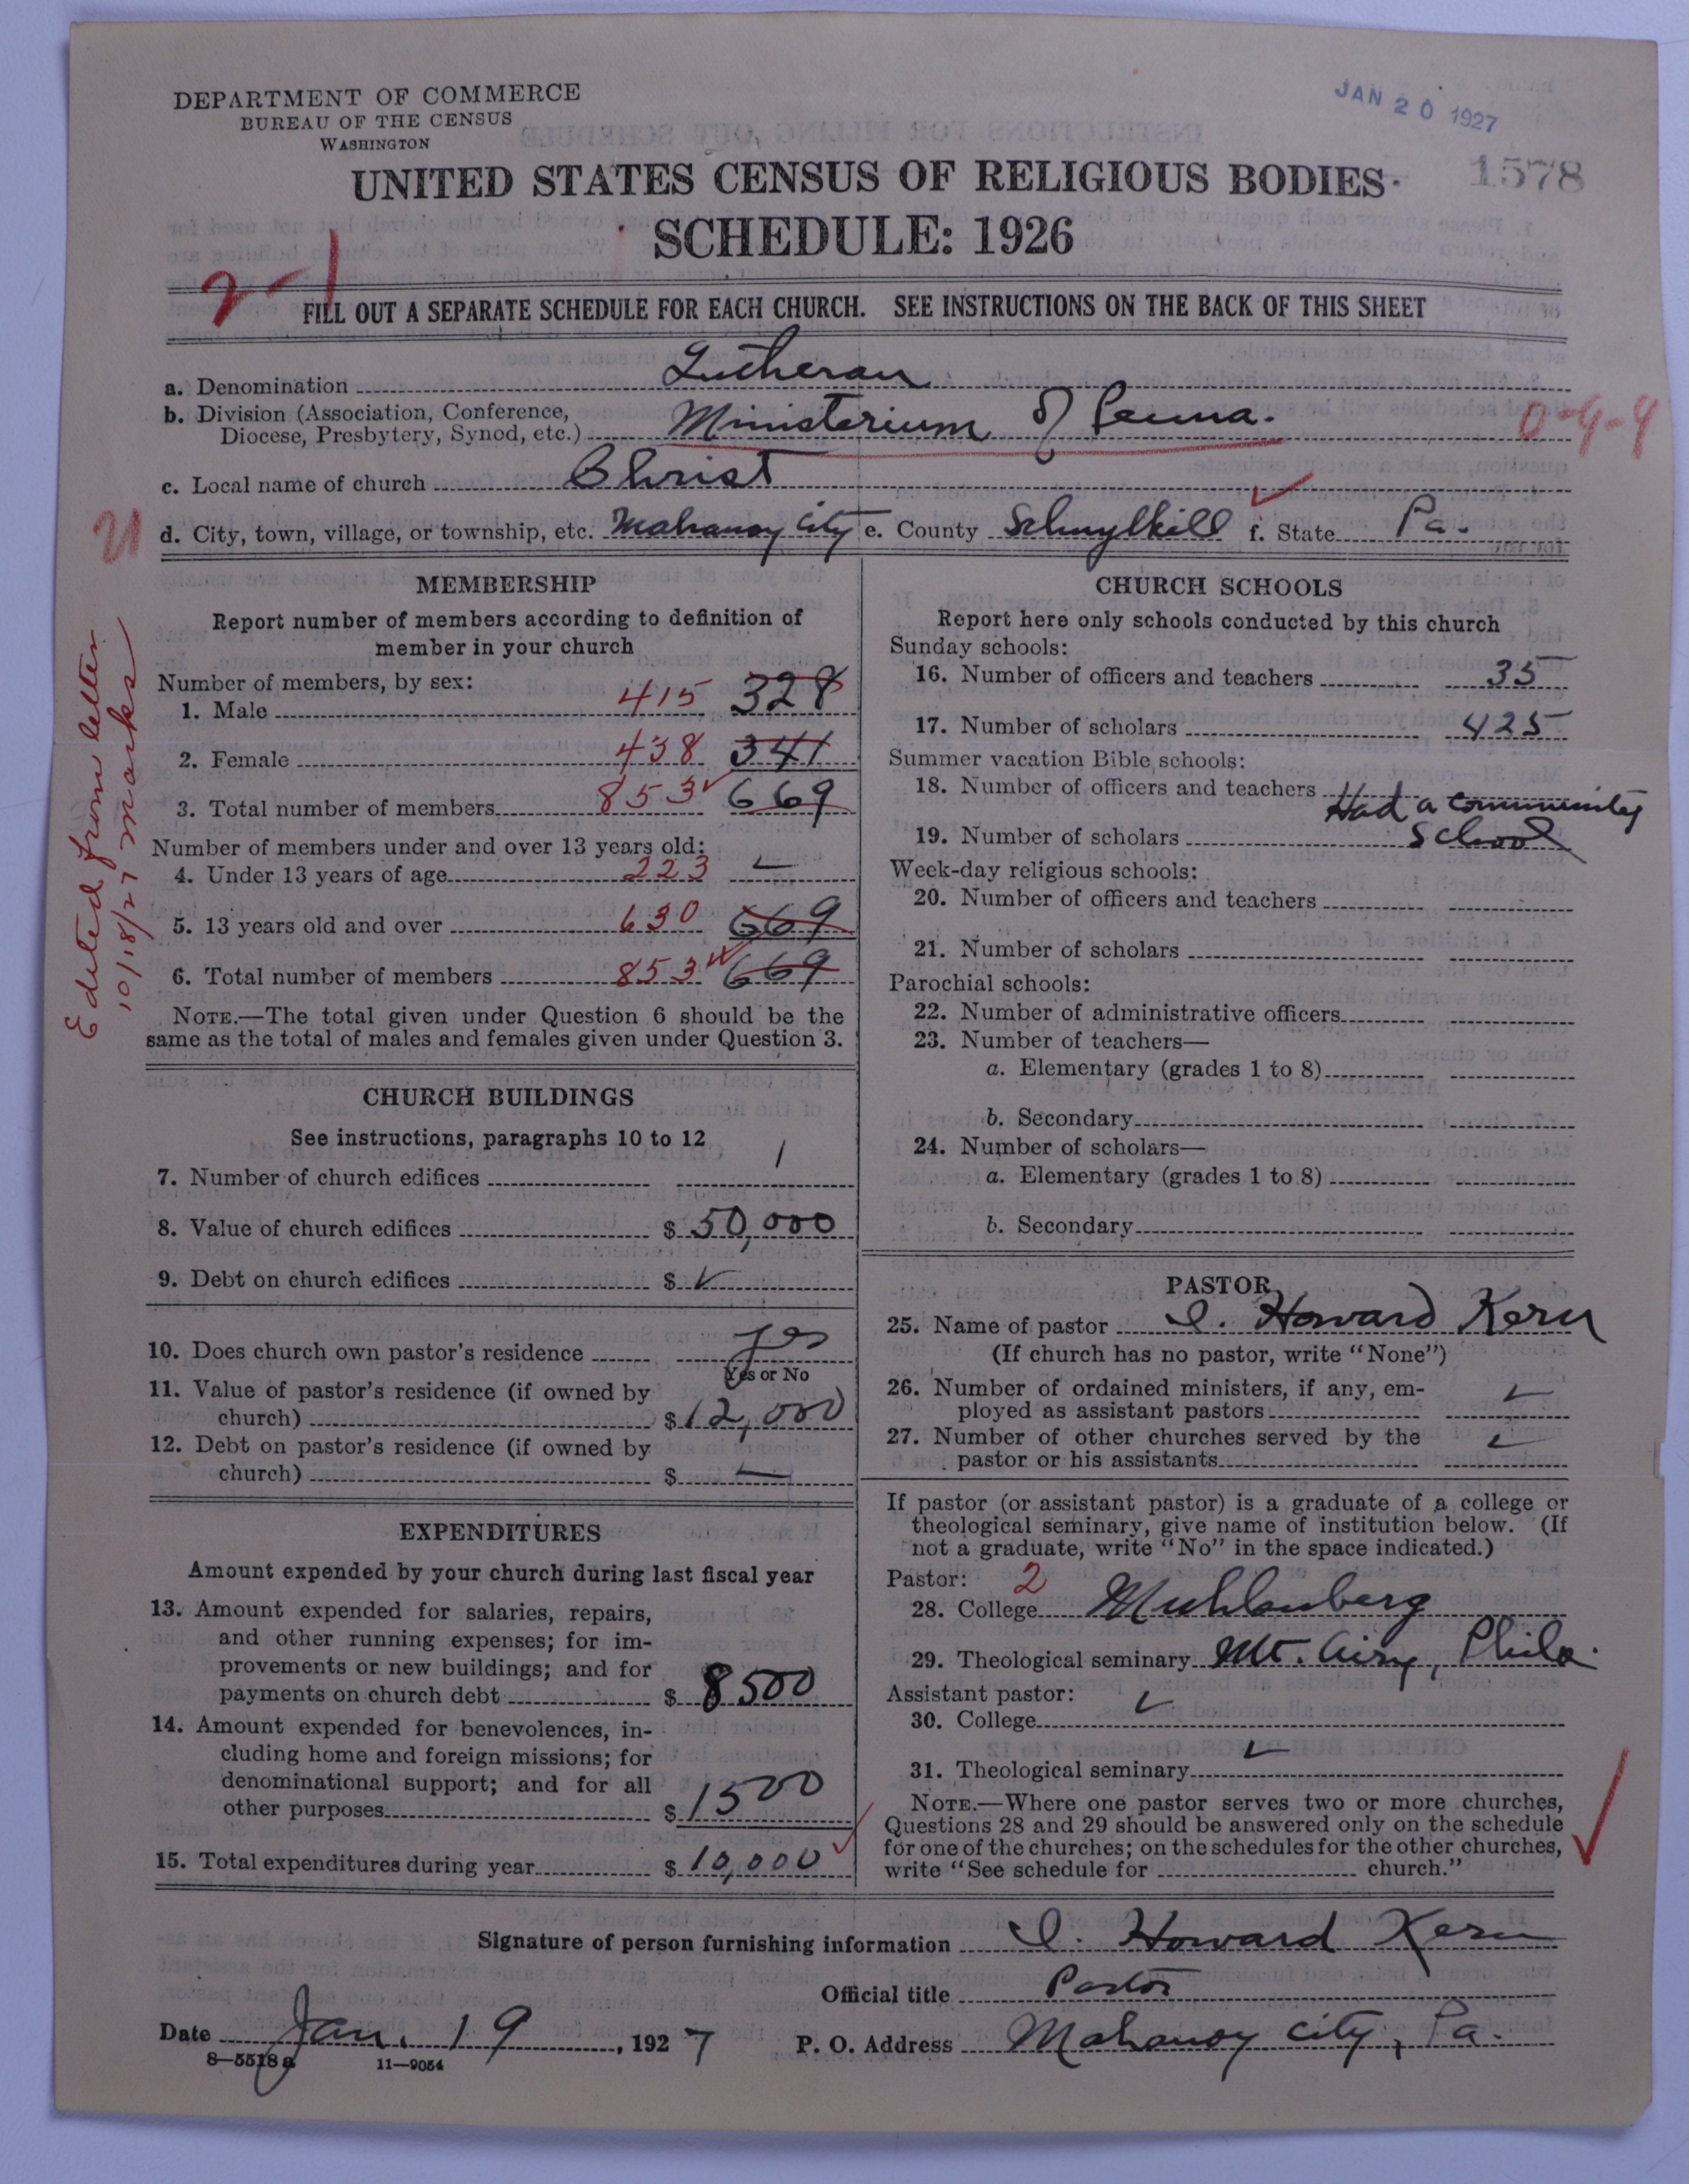 DEPARTMENT OF COMMERCE
BUREAU OF THE CENSUS
WASHINGTON
JAN 20 1927
1578
UNITED STATES CENSUS OF RELIGIOUS BODIES
SCHEDULE: 1926
2-1
FILL OUT A SEPARATE SCHEDULE FOR EACH CHURCH. SEE INSTRUCTIONS ON THE BACK OF THIS SHEET
a. Denomination Lutheran
b. Division (Association, Conference,
Diocese, Presbytery, Synod, etc.) Ministerium of Penna.
0-4-4
c. Local name of church Christ
d. City, town, village, or township, etc. Mahanoy City e. County Schuylkill f. State Pa.
Edited from letter
10/18/27 Marks
MEMBERSHIP
Report number of members according to definition of
member in your church
Number of members, by sex:
1. Male 415 328
2. Female 438 341
3. Total number of members 853 669
Number of members under and over 13 years old:
4. Under 13 years of age 223
5. 13 years old and over 630 669
6. Total number of members 853 669
NOTE.—The total given under Question 6 should be the
same as the total of males and females given under Question 3.
CHURCH BUILDINGS
See instructions, paragraphs 10 to 12
7. Number of church edifices 1
8. Value of church edifices $ 50,000
9. Debt on church edifices $
10. Does church own pastor's residence yes
Yes or No
11. Value of pastor's residence (if owned by
church) $ 12,000
12. Debt on pastor's residence (if owned by
church) $ —
EXPENDITURES
Amount expended by your church during last fiscal year
13. Amount expended for salaries, repairs,
and other running expenses; for im-
provements or new buildings; and for
payments on church debt $ 8500
14. Amount expended for benevolences, in-
cluding home and foreign missions; for
denominational support; and for all
other purposes $ 1500
15. Total expenditures during year $ 10,000
CHURCH SCHOOLS
Report here only schools conducted by this church
Sunday schools:
16. Number of officers and teachers 35
17. Number of scholars 425
Summer vacation Bible schools:
18. Number of officers and teachers Had a community
19. Number of scholars School
Week-day religious schools:
20. Number of officers and teachers
21. Number of scholars
Parochial schools:
22. Number of administrative officers
23. Number of teachers—
a. Elementary (grades 1 to 8)
b. Secondary
24. Number of scholars—
a. Elementary (grades 1 to 8)
b. Secondary
PASTOR
25. Name of pastor I. Howard Kern
(If church has no pastor, write "None")
26. Number of ordained ministers, if any, em-
ployed as assistant pastors
27. Number of other churches served by the
pastor or his assistants
If pastor (or assistant pastor) is a graduate of a college or
theological seminary, give name of institution below. (If
not a graduate, write "No" in the space indicated.)
Pastor: 2
28. College Muhlenberg
29. Theological seminary Mt. Airy, Phila.
Assistant pastor:
30. College
31. Theological seminary
NOTE.—Where one pastor serves two or more churches,
Questions 28 and 29 should be answered only on the schedule
for one of the churches; on the schedules for the other churches,
write "See schedule for church."
Signature of person furnishing information I. Howard Kern
Official title Pastor
Date Jan. 19, 1927 P. O. Address Mahanoy City, Pa.
8—5518a 11—9054